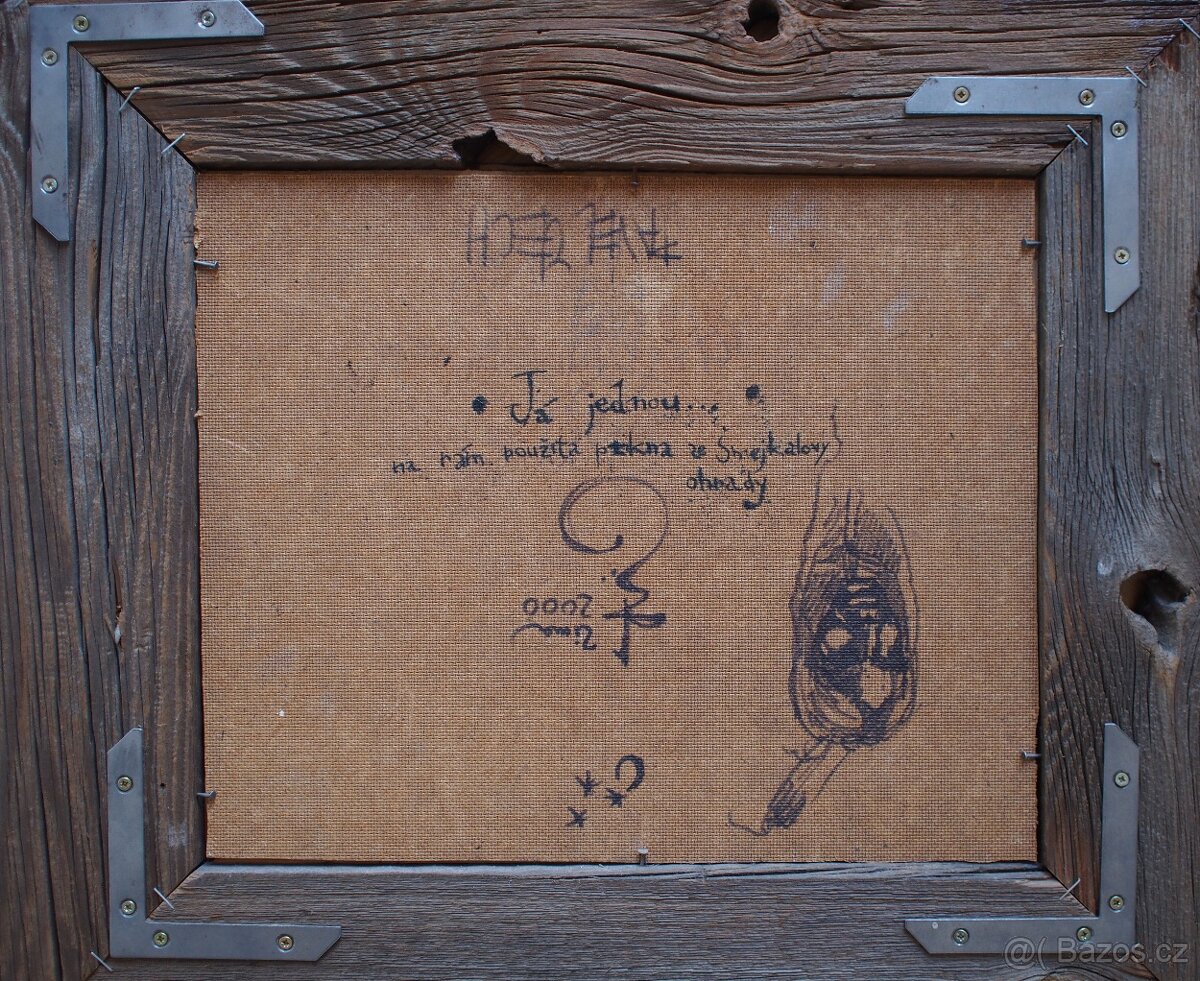 • Já jednou... •
na rám. použita prkna ze Smejkalovy
ohrady
Zima
2000
@( Bazos.cz